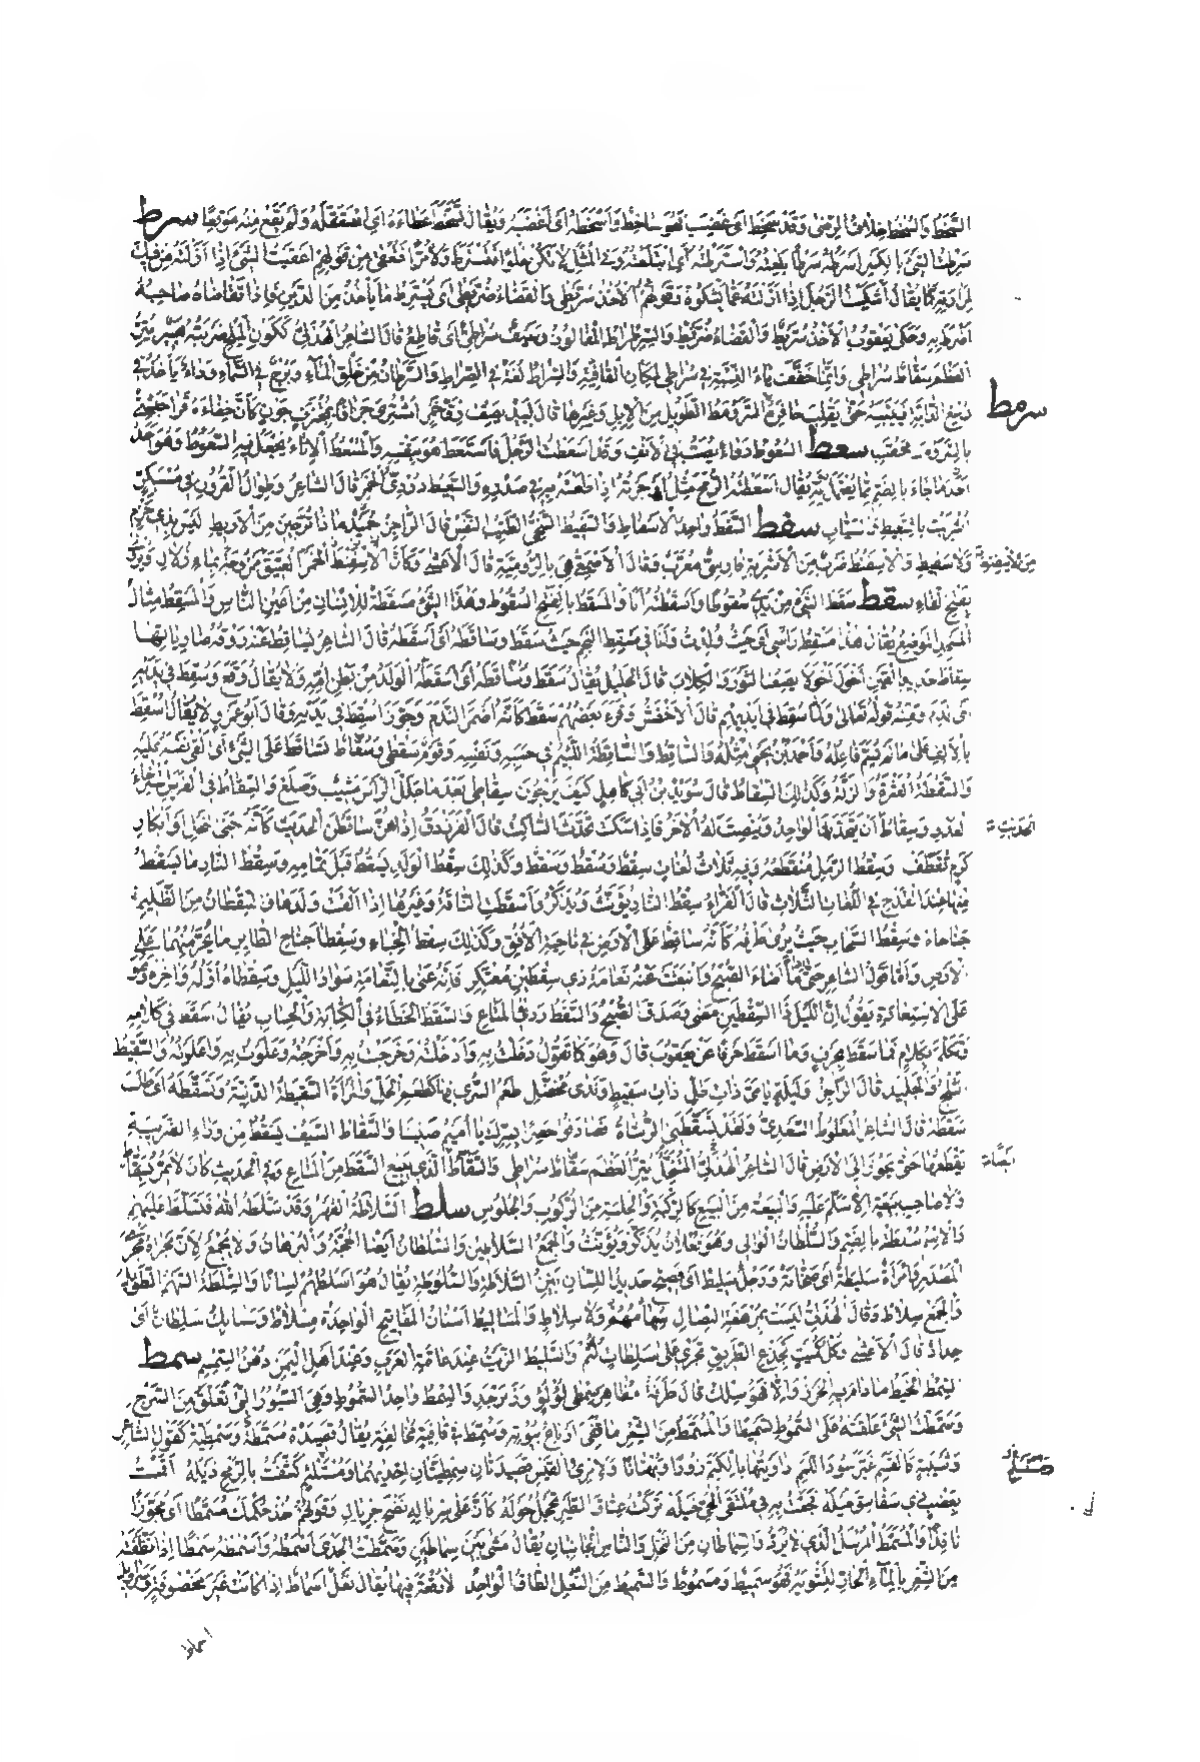 السَّخَط والسُّخْط خلاف الرِّضَى وقد سَخِطَ أى غَضِبَ فهو ساخِطٌ وأَسْخَطَهُ أى أَغْضَبَهُ ويقال تَسَخَّطَ عَطَاءَهُ أى استقلّه ولم يَقَعْ منه مَوْقِعًا سرط
سَرِطْتُ الشىءَ بالكسر أَسْرَطُهُ سَرْطًا بَلِعْتُهُ واسْتَرَطْتُهُ أى ابتلعته وفى المثل لا تكن حلوا فتُسْتَرَط ولا مُرًّا فتُعْقِىَ من قولهم أَعْقَيْتُ الشىءَ إذا أزلته من فيك
لمرارته كما يقال أَشْكَيْتُ الرجل إذا أزلته عما يشكوه وقولهم الأخذ سُرَّيْطَى والقضاء ضُرَّيْطَى أى يَسْتَرِطُ ما يأخذ من الدين فإذا تقاضاه صاحبه
أَضْرَطَ به وحكى يعقوب الأخذ سُرَّيْط والقضاء ضُرَّيْط والسِّرِطْرَاط الفالوذ وسيف سُرَاطِىٌّ أى قاطع قال الشاعر الهذلى كلون الملح ضربته هبير يُتِرُّ
العظم سَقَّاط سُرَاطِى وإنما خفف ياء النسبة فى سراطى لمكان القافية والسراط لغة فى الصراط والسرطان من خلق الماء وبرج فى السماء وداء يأخذ فى
رسغ الدابة فييبسه حتى يقلب حافره سرمط السَّرَوْمَط الطويل من الإبل وغيرها قال لبيد يصف زق خمر اشترى جزافا بمجتزف جون كأن خفاءه قرا حبشى
بالسرومط محقب سعط السَّعُوط دواء يُصَبُّ فى الأنف وقد أَسْعَطْتُ الرجل فاستعط هو بنفسه والمُسْعُط الإناء يجعل فيه السعوط وهو أحد
ما جاء بالضم مما يعتمل به يقال أسعطته الرمح مثل أوجرته إذا طعنته به فى صدره والسَّعِيط دردى الخمر قال الشاعر وطوال القرون فى مسبكر
أشربت بالسعيط سفط السَّفَط واحد الأسفاط والسَّفِيط السخى الطيب النفس قال الراجز حميد
ولا سفيط والإسفنط ضرب من الأشربة فارسى معرب وقال الأصمعى هى بالرومية قال الأعشى وكأن الخمر العتيق من الإسفنط ممزوجة بماء زلال
بفتح الفاء سقط سَقَطَ الشىء من يدى سقوطا وأسقطته أنا والمَسْقَط بالفتح السقوط وهذا الشىء مَسْقَطَة للإنسان من أعين الناس والمَسْقِط مثال
المجلس الموضع يقال هذا مسقط رأسى أى حيث ولدت وأتانا فى مسقط النجم حيث سقط وساقطه أى أسقطه قال الشاعر يساقط عنه روقه ضارياتها
سقاط حديد القين أخول أخولا يصف الثور والكلاب قال الخليل يقال سقط الولد من بطن أمه ولا يقال وقع وسُقِطَ فى يديه
أى ندم ومنه قوله تعالى ولما سُقِطَ فى أيديهم قال الأخفش وقرأ بعضهم سَقَطَ كأنه أضمر الندم وجوّز أُسْقِطَ فى يديه وقال أبو عمرو ولا يقال أُسْقِطَ
بالألف على ما لم يسم فاعله وأحمد بن يحيى مثله والساقط والساقطة اللئيم فى حسبه ونفسه وقوم سَقْطَى وسُقَّاط تساقط على الشىء أى ألقى نفسه عليه
والسَّقْطَة العثرة والزلة وكذلك السِّقَاط قال سويد بن أبى كاهل كيف يرجون سقاطى بعد ما جلل الرأس مشيب وصلع والسقاط فى الفرس استرخاء
العدو وسقاط أن يتحدث الواحد وينصت له الآخر فإذا سكت تحدث الساكت قال الفرزدق إذا هن ساقطن الحديث كأنه جنى النحل أو أبكار الحديث
كرم تقطف وسقط الرمل منقطعه وفيه ثلاث لغات سِقْط وسُقْط وسَقْط وكذلك سقط الولد لما يسقط قبل تمامه وسقط النار ما يسقط
منها عند القدح فى اللغات الثلاث قال الفراء سقط النار يؤنث ويذكر وأسقطت الناقة وغيرها إذا ألقت ولدها والسقطان من الظليم
جناحاه وسقط السحاب حيث يرى طرفه كأنه ساقط على الأرض فى ناحية الأفق وكذلك سقط الخباء وسقطا جناح الطائر ما يجر منهما على
الأرض وأما قول الشاعر حتى إذا ما أضاء الصبح وانبعثت عنه نعامة ذى سقطين معتكر فإنه عنى بالنعامة سواد الليل وسقطاه أوله وآخره وهو
على الاستعارة يقول إن الليل ذا السقطين مضى وصدق الصبح والسَّقَط ردىء المتاع والسقط الخطأ فى الكتابة والحساب يقال أسقط فى كلامه
وتكلم بكلام فما سقط بحرف وما أسقط حرفا عن يعقوب قال وهو كما تقول دخلت به وأدخلته وخرجت به وأخرجته وعلوت به وأعلوته والسقيط
الثلج والجليد قال الراجز وليلة يا مى ذات طل ذات سقيط وندى مخضل طعم السرى فيها كطعم الخل والمرأة السقيطة الدنية وتسقطه أى طلب
سقطه قال الشاعر ولقد تسقطنى الوشاة فصادفوا حصرا بسرك يا أميم ضنينا والسقاط السيف يسقط من وراء الضريبة
يقطعها حتى يجوز إلى الأرض قال الشاعر الهذلى المتنخل يتر العظم سقاط سراطى والسَّقَّاط الذى يبيع السقط من المتاع وفى الحديث كان لا يمر بسقاط
ولا صاحب بيعة إلا سلم عليه والبيعة من البيع كالركبة والجلسة من الركوب والجلوس سلط السَّلَاطَة القهر وقد سلطه الله فتسلط عليهم
والاسم سُلْطَة بالضم والسلطان الوالى وهو فعلان يذكر ويؤنث والجمع السلاطين والسلطان أيضا الحجة والبرهان ولا يجمع لأن مجراه مجرى
المصدر وامرأة سليطة أى صخابة ورجل سليط أى فصيح حديد اللسان بين السلاطة والسلوطة يقال هو أسلطهم لسانا والسلطة السهم الطويل
والجمع سلاط وقال الهذلى ليست بمرهفة النصال ولا سلاط والمساليط أسنان المفاتيح الواحدة مسلاط وسنابك سلطات أى
حداد قال الأعشى وكل كميت كجذع الطريق تجرى على سلطات لثم والسليط الزيت عند عامة العرب وعند أهل اليمن دهن السمسم سمط
السمط الخيط ما دام فيه الخرز وإلا فهو سلك قال طرفة مظاهر سمطى لؤلؤ وزبرجد والسمط واحد السموط وهى السيور التى تعلق من السرج
وسمطت الشىء علقته على السموط تسميطا والمسمط من الشعر ما قفى أرباع بيوته وسمط فى قافية مخالفة يقال قصيدة مسمطة وسمطية كقول الشاعر
وشيبة كالقسم غير سود اللمم داويتها بالكتم زورا وبهتانا ولامرئ القيس قصيدتان سمطيتان إحداهما ومستلئم كشفت بالرمح ذيله أقمت
بعضب ذى سفاسق ميله فجعت به فى ملتقى الحى خيله تركت عتاق الطير تحجل حوله كأن على سرباله نضح جريال وقولهم خذ حكمك مسمطا أى مجوزا
نافذا والمسمط المرسل الذى لا يرد والسماطان من النخل والناس الجانبان يقال مشى بين سماطين وسمطت الجدى أسمطه وأسمطه سمطا إذا نظفته
من الشعر بالماء الحار لتشويه فهو سميط ومسموط والسميط من النعل الطاق الواحد لا رقعة فيها يقال نعل أسماط إذا كانت غير مخصوفة
أسماط